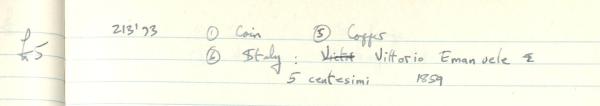 213'93 ① Coin ⑤ Copper
£5 ⑥ Italy : Victo Vittorio Emanuele II
5 centesimi 1859